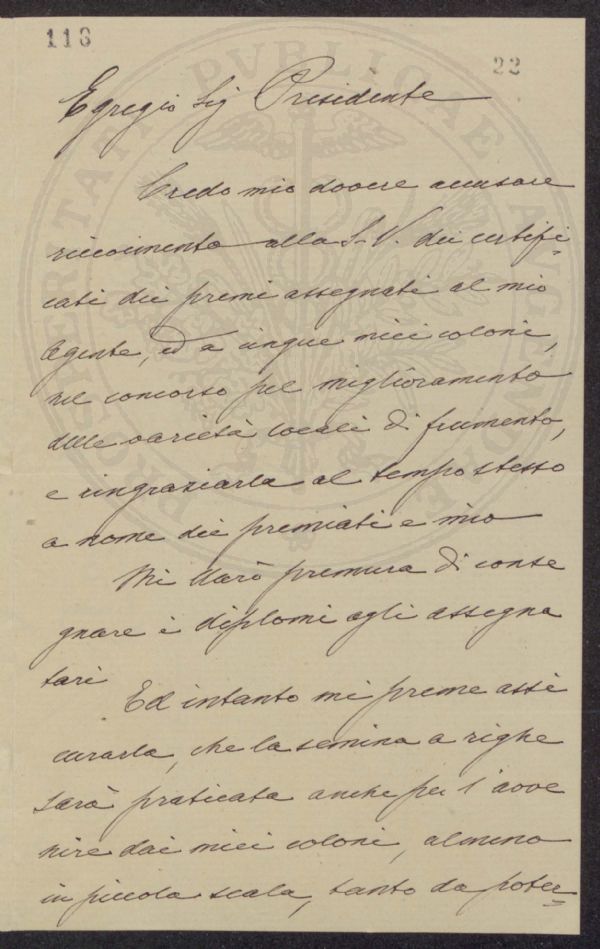 116
22
Egregio Sig Presidente
Credo mio dovere accusare
ricevimento alla S.V. dei certifi=
cati dei premi assegnati al mio
Agente, ed a cinque miei coloni,
nel concorso pel miglioramento
delle varietà locali di frumento,
e ringraziarla al tempo stesso
a nome dei premiati e mio
Mi darò premura di conse
gnare i diplomi agli assegna
tari
Ed intanto mi preme assi
curarla, che la semina a righe
sarà praticata anche per l'avve
nire dai miei coloni, almeno
in piccola scala, tanto da poter=
PROSPERITATI PVBLICAE AVGENDAE